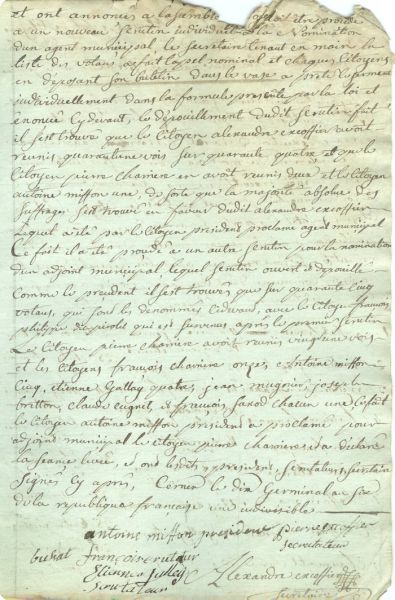 et ont annoncés a lasamblée
a un nouveau scrutin individuel a la Nomination
dun agent municipal, le secretaire tenant en main la
liste des votans, a fait lapel nominal et chaques Citoyens
en déposant son bulletin dans le vase a preté le serment
individuellement dans la formule presente par la loi et
enoncé cydevant, le dépouillement dudit scrutin fait
il sest trouvé que le Citoyen alexandre excoffier avoit
reunis quarante une vois sur quarante quatre et que le
Citoyen pierre charriere en avoit reunis deux et le Citoyen
antoine miffon une, de sorte que la majorité absolue des
suffrages sest trouvé en faveur dudit alexandre excoffier
Lequel a été par le Citoyen president proclamé agent municipal
Ce fait il a été procédé a un autre scrutin pour la nomination
dun adjoint municipal lequel scrutin ouvert et dépouillé
Comme le precedent il sest trouvés que sur quarante Cinq
votans, qui sont les dénommés cidevant, avec le Citoyen françois
qui est survenus apres le premier scrutin
Le Citoyen pierre charriere avoit reunis vingt une vois
et les Citoyens françois charriere onze, Antoine miffon
Cinq, etienne Gallay quatre, jean mugnier, joseph
britton, claude cugnet, et françois Sanod chacun une, ce fait
le Citoyen antoine miffon president a proclamé pour
adjoint municipal le citoyen pierre charriere et a déclaré
la seance levée, et ont lesdits president, scrutateurs, secretaire
signés cy apres, Cernex le dix Germinal an six
de la republique francaise une indivisible
antoine miffon president pierre
secretateur
buttat françois
Etienne Galley
scrutateur
Alexandre excoffier
secretaire